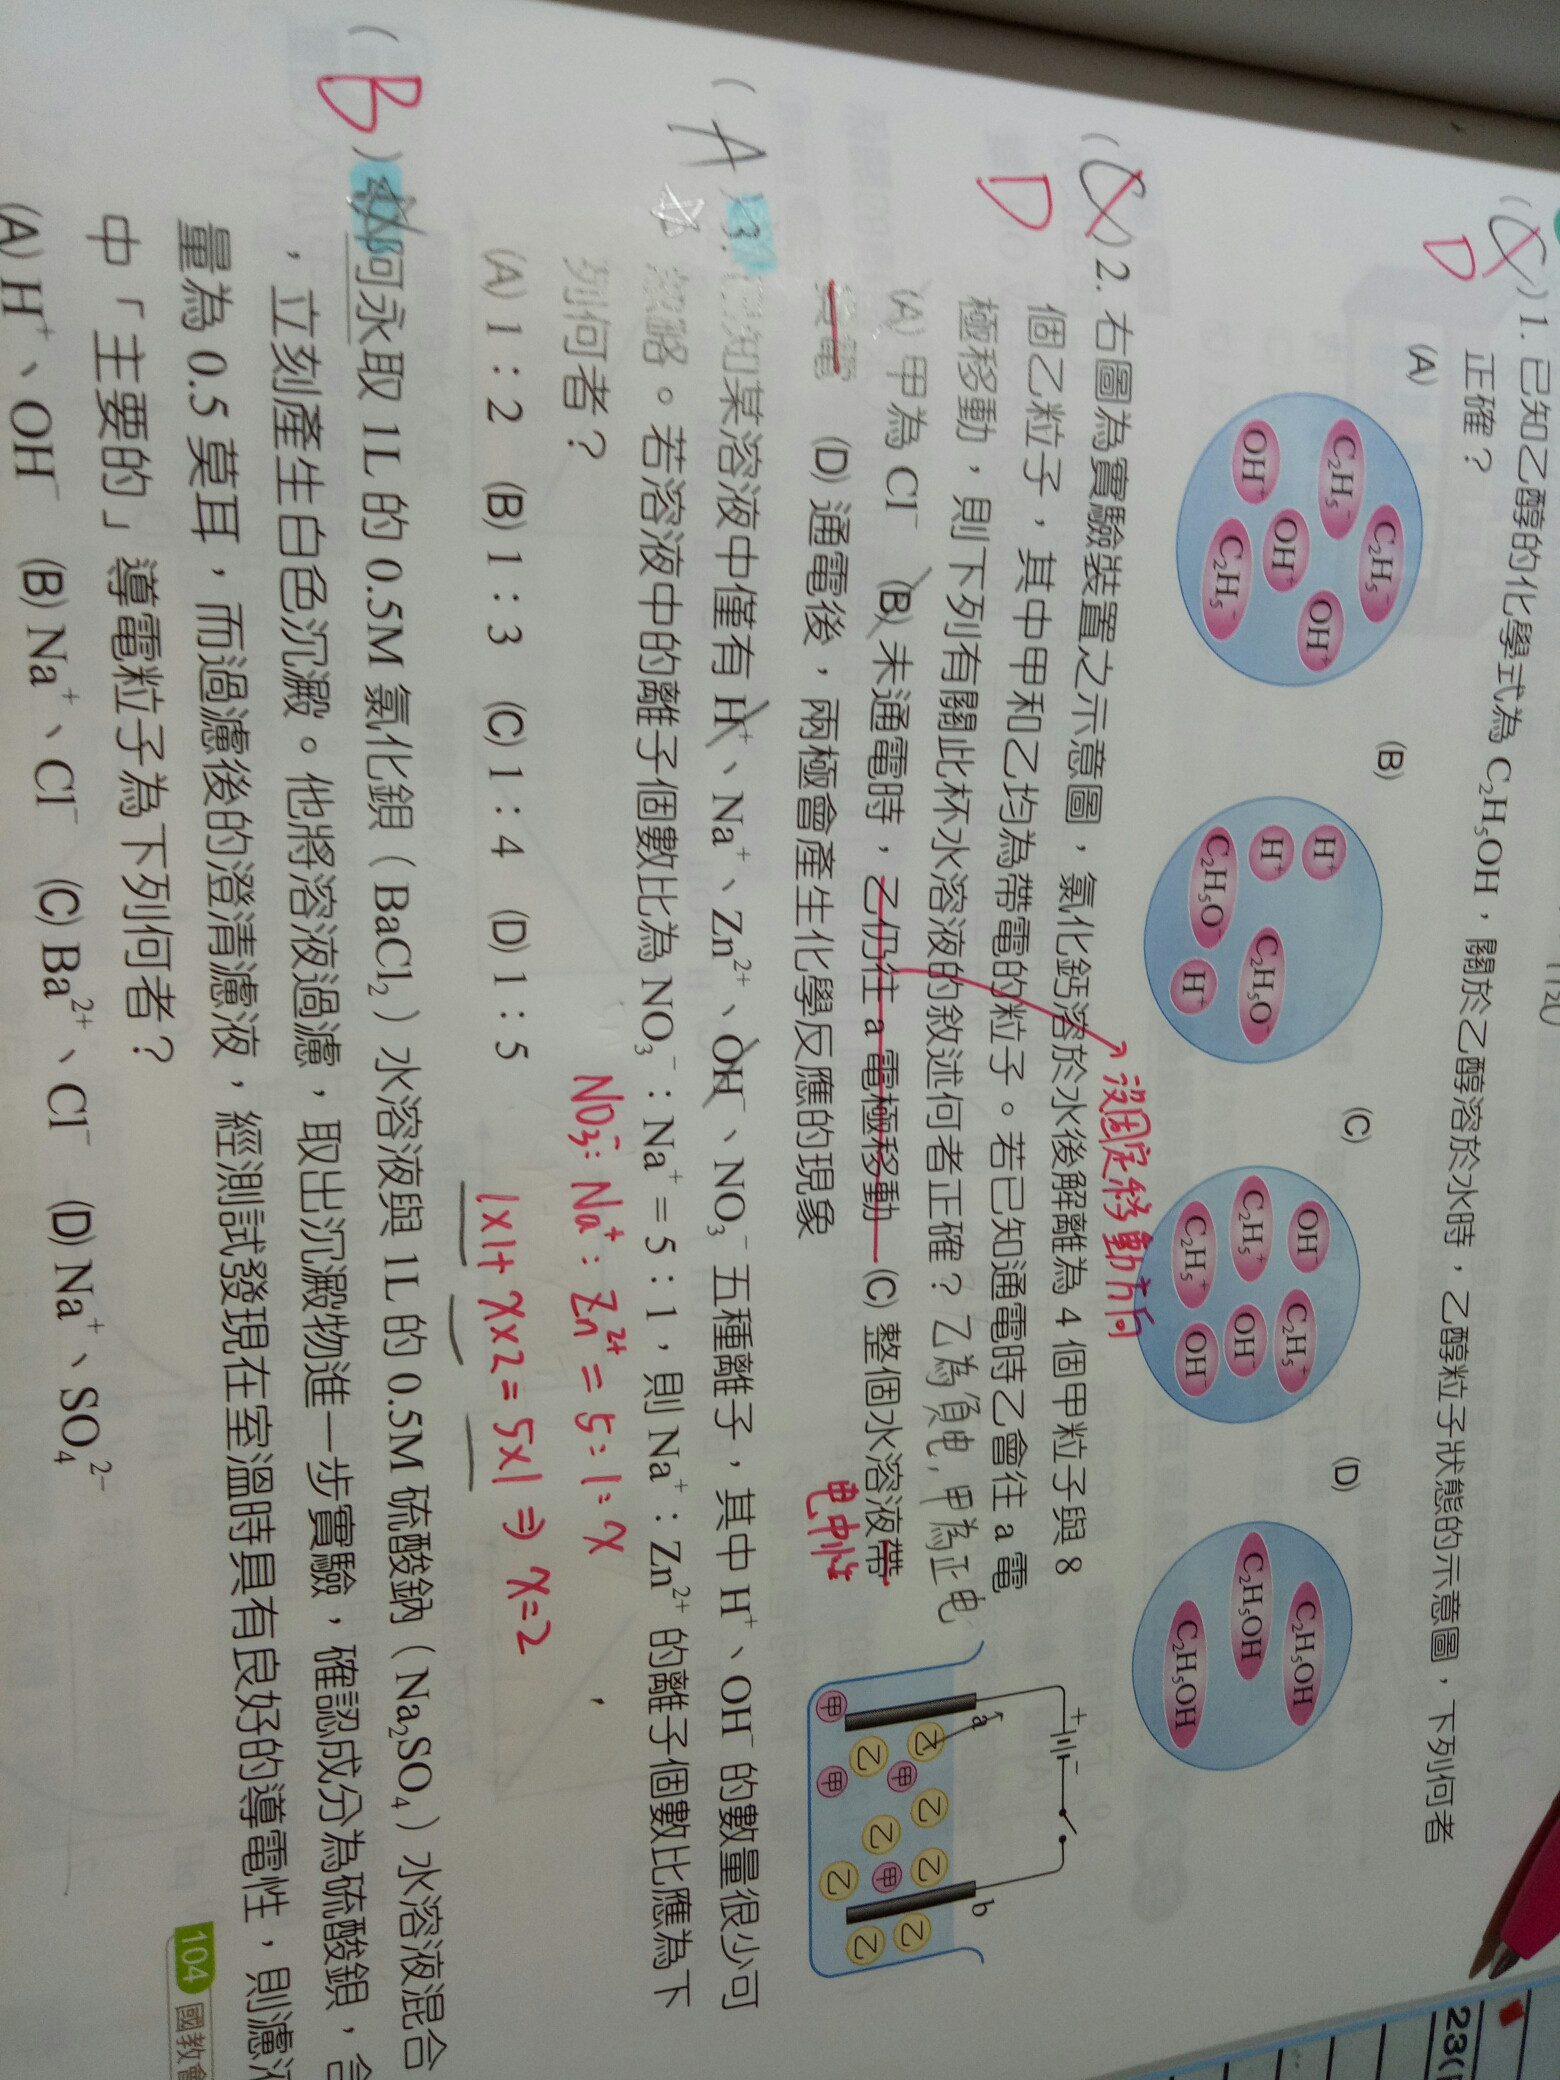 (C) D 1. 已知乙醇的化學式為 C₂H₅OH，關於乙醇溶於水時，乙醇粒子狀態的示意圖，下列何者
正確？
(A) (B) (C) (D)
C₂H₅⁻ C₂H₅⁻ OH⁺ OH⁺ OH⁺ C₂H₅⁻
H⁺ H⁺ C₂H₅O⁻ C₂H₅O⁻ H⁺
OH⁻ C₂H₅⁺ C₂H₅⁺ C₂H₅⁺ OH⁻ OH⁻
C₂H₅OH C₂H₅OH C₂H₅OH
(C) D 2. 右圖為實驗裝置之示意圖，氯化鈣溶於水後解離為 4 個甲粒子與 8
個乙粒子，其中甲和乙均為帶電的粒子。若已知通電時乙會往 a 電
極移動，則下列有關此杯水溶液的敘述何者正確？乙為負电，甲為正电
(A) 甲為 Cl⁻ (B) 未通電時，乙仍往 a 電極移動 (C) 整個水溶液帶
負電 (D) 通電後，兩極會產生化學反應的現象
沒固定移動方向
电中性
+ − a b
甲 乙 乙 甲 甲 乙 乙 乙 甲 乙 乙 乙
(A) 3. 已知某溶液中僅有 H⁺、Na⁺、Zn²⁺、OH⁻、NO₃⁻ 五種離子，其中 H⁺、OH⁻ 的數量很少可
忽略。若溶液中的離子個數比為 NO₃⁻：Na⁺ = 5：1，則 Na⁺：Zn²⁺ 的離子個數比應為下
列何者？
(A) 1：2 (B) 1：3 (C) 1：4 (D) 1：5
NO₃⁻: Na⁺: Zn²⁺ = 5:1:x
1×1+x×2=5×1 ⇒ x=2
(B) 阿永取 1L 的 0.5M 氯化鋇（BaCl₂）水溶液與 1L 的 0.5M 硫酸鈉（Na₂SO₄）水溶液混合
，立刻產生白色沉澱。他將溶液過濾，取出沉澱物進一步實驗，確認成分為硫酸鋇，含
量為 0.5 莫耳，而過濾後的澄清濾液，經測試發現在室溫時具有良好的導電性，則濾液
中「主要的」導電粒子為下列何者？
(A) H⁺、OH⁻ (B) Na⁺、Cl⁻ (C) Ba²⁺、Cl⁻ (D) Na⁺、SO₄²⁻
104 國教會
23(